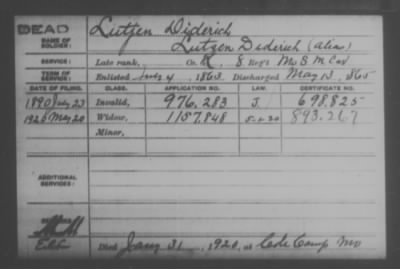 DEAD
NAME OF SOLDIER: Lutjen Diderich
Lutzon Dederich (alias)
SERVICE: Late rank, Co. K, 8 Reg't Mo S M Cav
TERM OF SERVICE: Enlisted July 4, 1863, Discharged May 13, 1865
DATE OF FILING. CLASS. APPLICATION NO. LAW. CERTIFICATE NO.
1890 July 23 Invalid, 976.283 J. 698.825
1920 May 20 Widow, 1157.848 5-1-20 893.267
Minor,
ADDITIONAL SERVICES:
Died Jany 31, 1920, at Cole Camp Mo